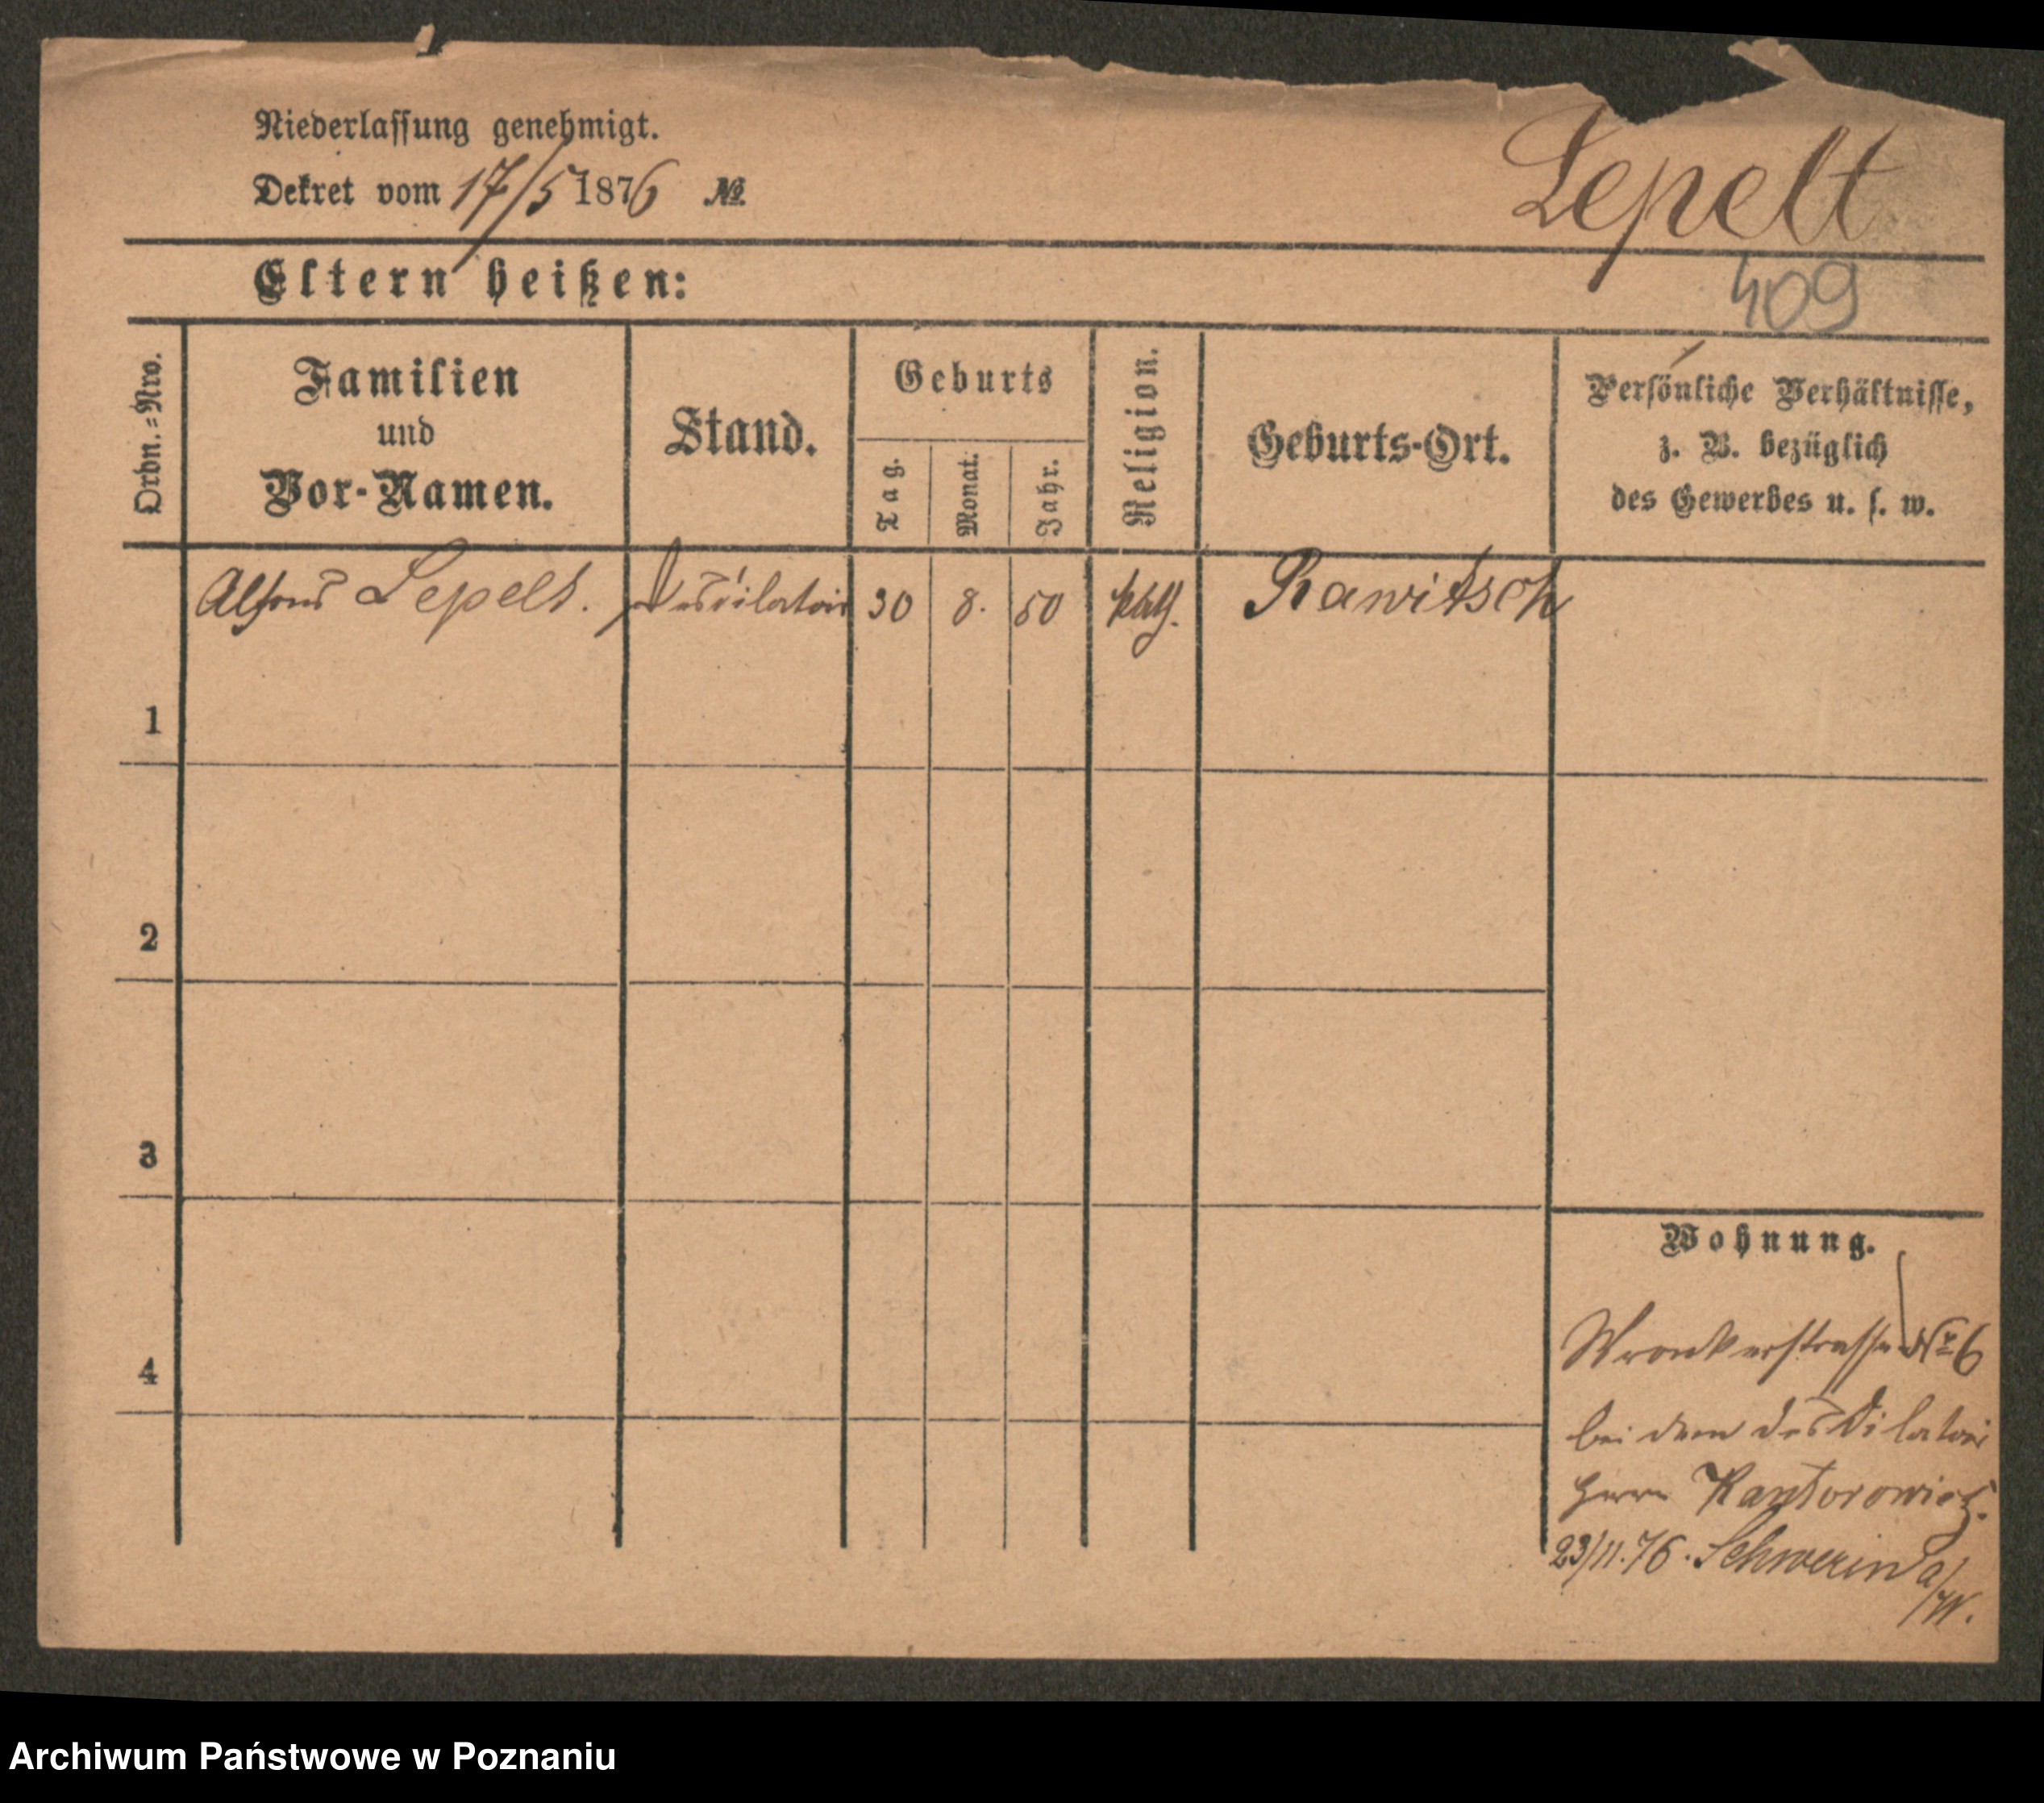 Niederlassung genehmigt.
Dekret vom 17/5 1876 №
Lepelt
409
Eltern heißen:
Ordn.-Nro.
Familien
und
Vor-Namen.
Stand.
Geburts
Tag.
Monat.
Jahr.
Religion.
Geburts-Ort.
Persönliche Verhältnisse,
z. B. bezüglich
des Gewerbes u. s. w.
1 Alfons Lepelt. Destilateur 30 8. 50 kath. Rawitsch
2
3
4
Wohnung.
Wronkerstrasse Nr 6
bei dem Destilateur
Herrn Kantorowicz.
23/11.76. Schwerin a/W.
Archiwum Państwowe w Poznaniu